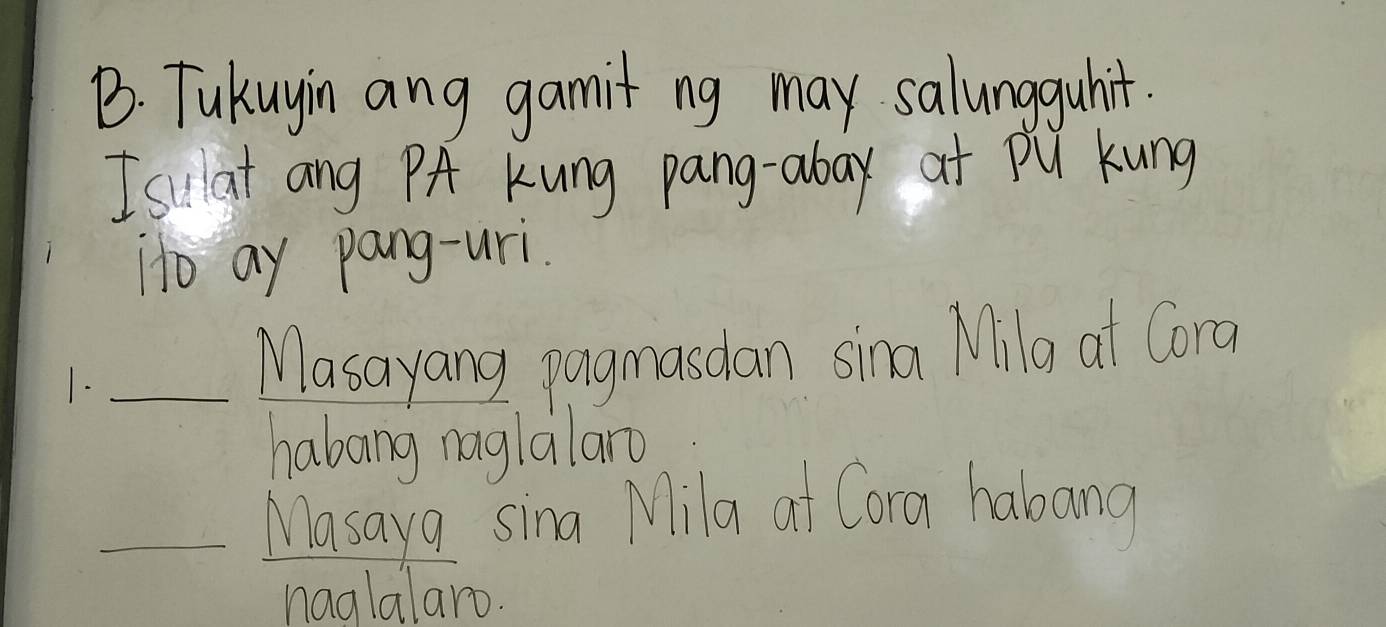 B. Tukuyin ang gamit ng may salungguhit.
Isulat ang PA kung pang-abay at PU kung
ito ay pang-uri.
1. ____ Masayang pagmasdan sina Mila at Cora
habang naglalaro.
____ Masaya sina Mila at Cora habang
naglalaro.